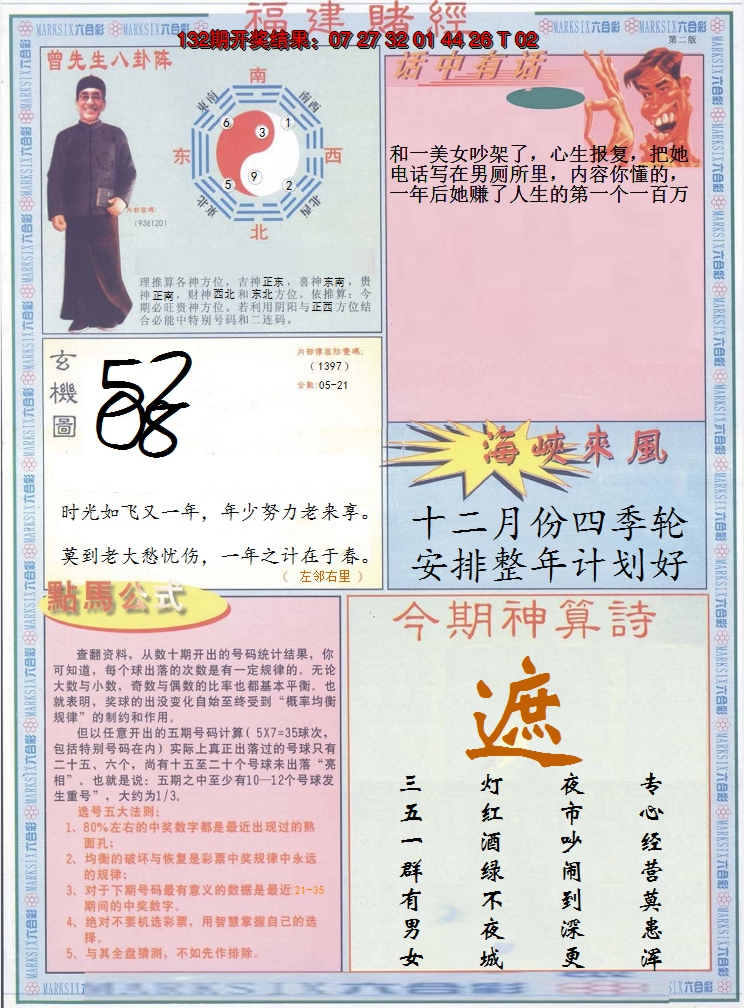 福建賭經
132期开奖结果：07 27 32 01 44 26 T 02
MARKSIX六合彩
第二版
曾先生八卦阵
南
东南
南西
6
3
1
东
西
5
9
2
東北
北西
北
内部密碼：
（936120）
理推算各神方位，吉神正东，喜神东南，贵
神正南，财神西北和东北方位。依推算：今
期必旺贵神方位。若利用阴阳与正西方位结
合必能中特别号码和二连码。
话中有话
和一美女吵架了，心生报复，把她
电话写在男厕所里，内容你懂的，
一年后她赚了人生的第一个一百万
玄機圖
内部傳密防雙碼：
（1397）
合数：05-21
时光如飞又一年，年少努力老来享。
莫到老大愁忧伤，一年之计在于春。
（ 左邻右里 ）
海峽來風
十二月份四季轮
安排整年计划好
點馬公式
查翻资料，从数十期开出的号码统计结果，你
可知道，每个球出落的次数是有一定规律的。无论
大数与小数，奇数与偶数的比率也都基本平衡。也
就表明，奖球的出没变化自始至终受到“概率均衡
规律”的制约和作用。
但以任意开出的五期号码计算( 5X7=35球次，
包括特别号码在内）实际上真正出落过的号球只有
二十五、六个，尚有十五至二十个号球未出落“亮
相”。也就是说：五期之中至少有10—12个号球发
生重号”，大约为1/3。
选号五大法则：
1、80%左右的中奖数字都是最近出现过的熟
面孔；
2、均衡的破坏与恢复是彩票中奖规律中永远
的规律；
3、对于下期号码最有意义的数据是最近21-35
期间的中奖数字。
4、绝对不要机选彩票，用智慧掌握自己的选
择。
5、与其全盘猜测，不如先作排除。
今期神算詩
遮
专心经营莫患浑
夜市吵闹到深更
灯红酒绿不夜城
三五一群有男女